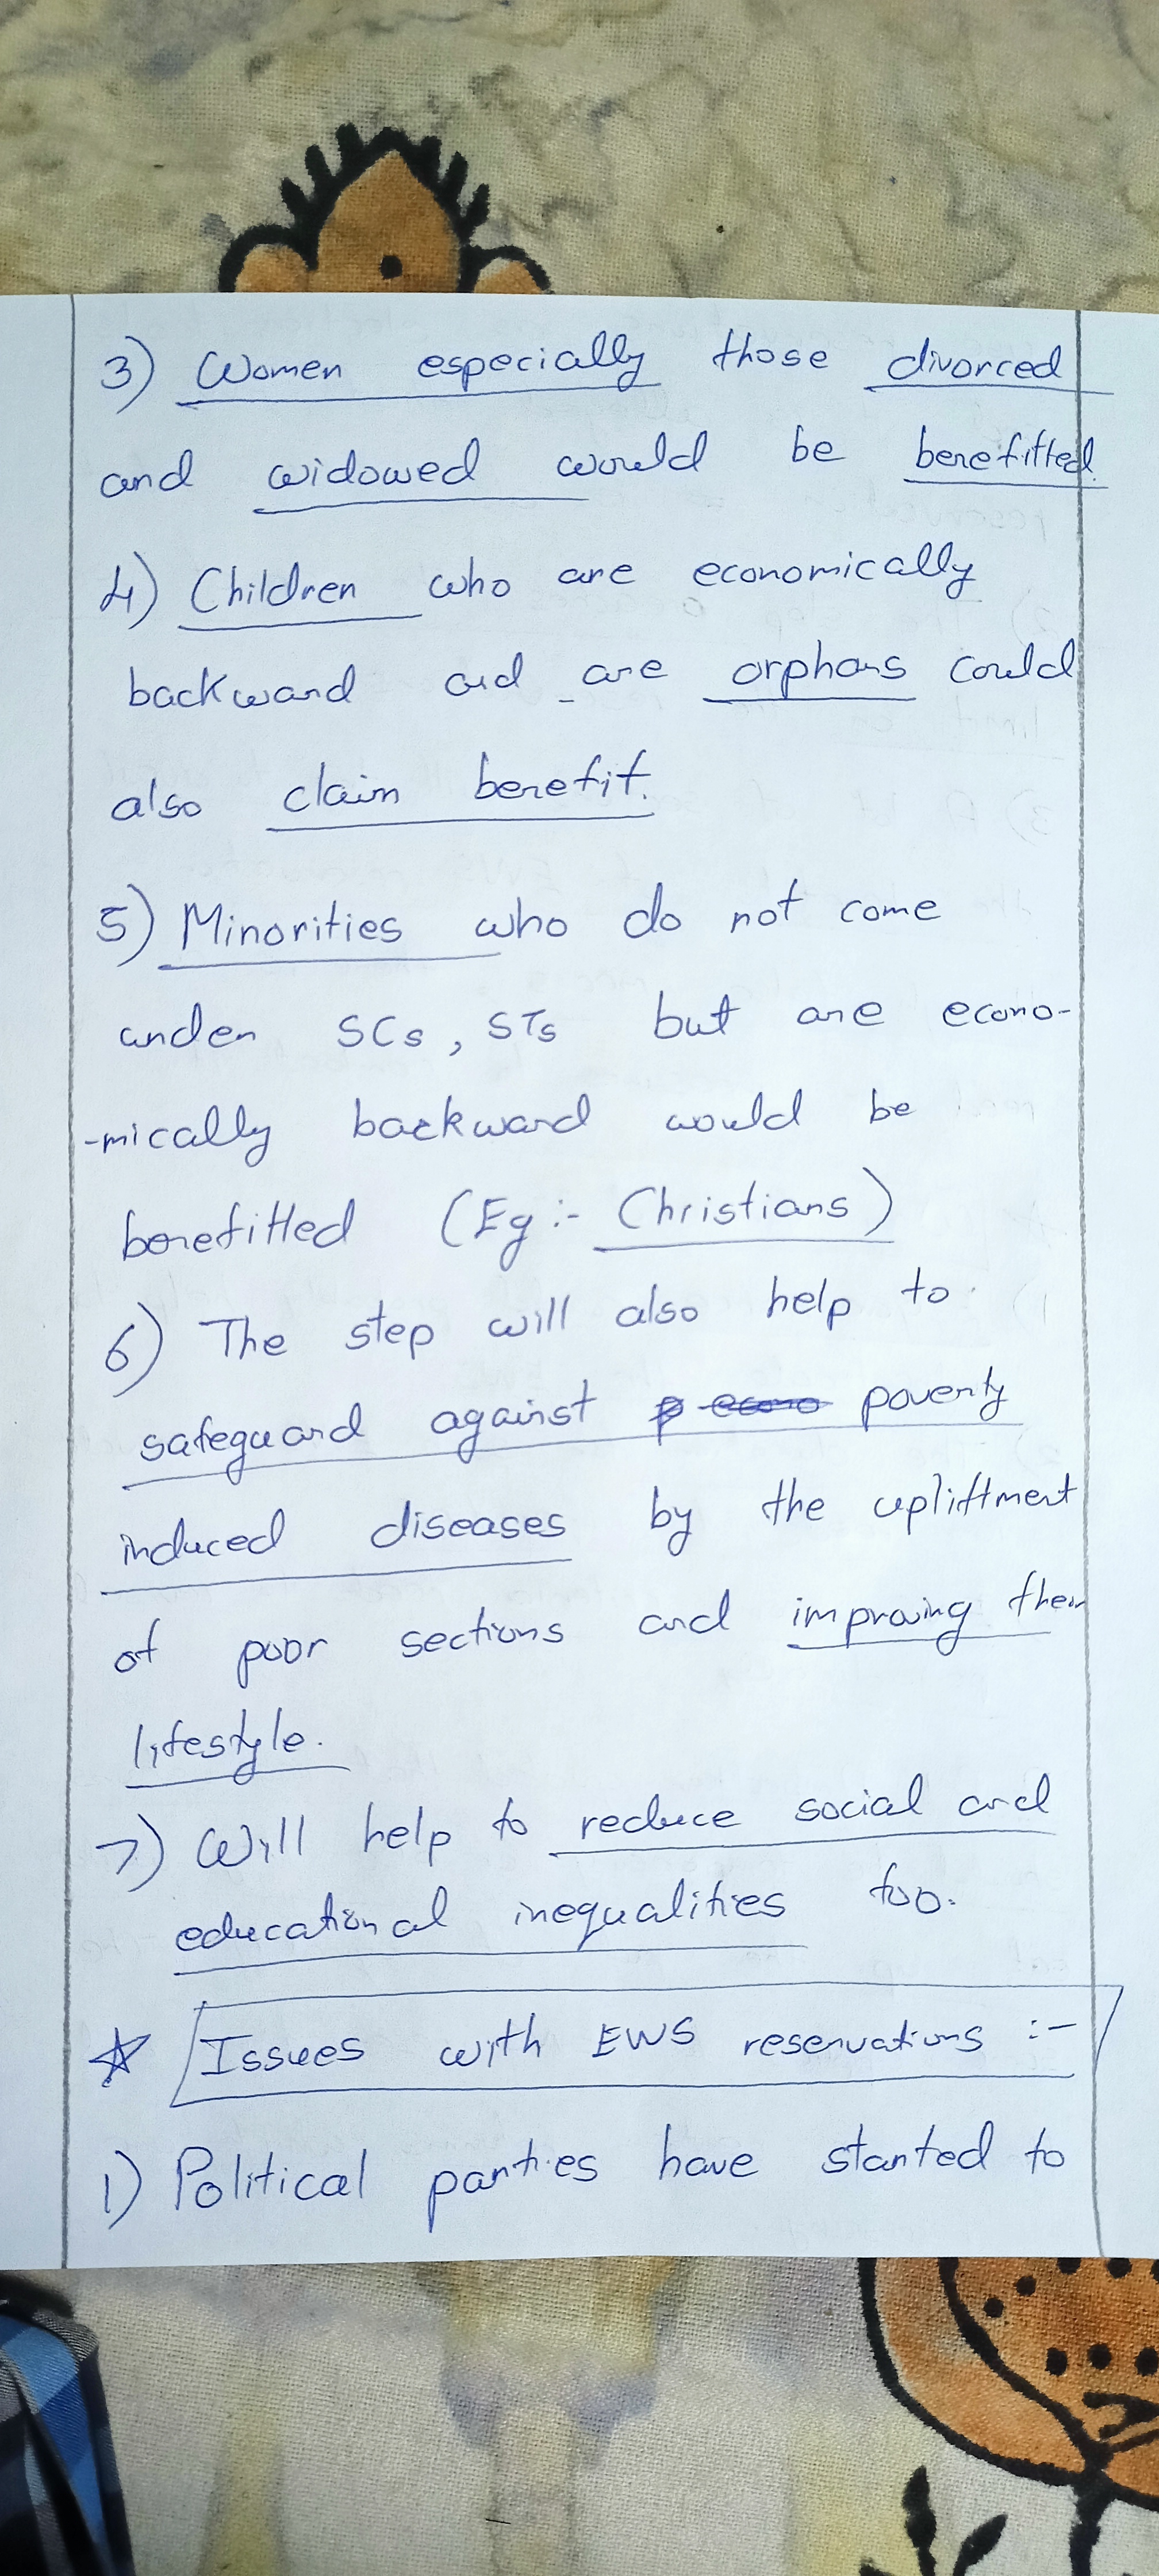 3) Women especially those divorced
and widowed would be benefitted.
4) Children who are economically
backward and are orphans could
also claim benefit.
5) Minorities who do not come
under SCs, STs but are econo-
-mically backward would be
benefitted (Eg :- Christians)
6) The step will also help to
safeguard against poverty
induced diseases by the upliftment
of poor sections and improving their
lifestyle.
7) Will help to reduce social and
educational inequalities too.
☆ Issues with EWS reservations :-
1) Political parties have started to